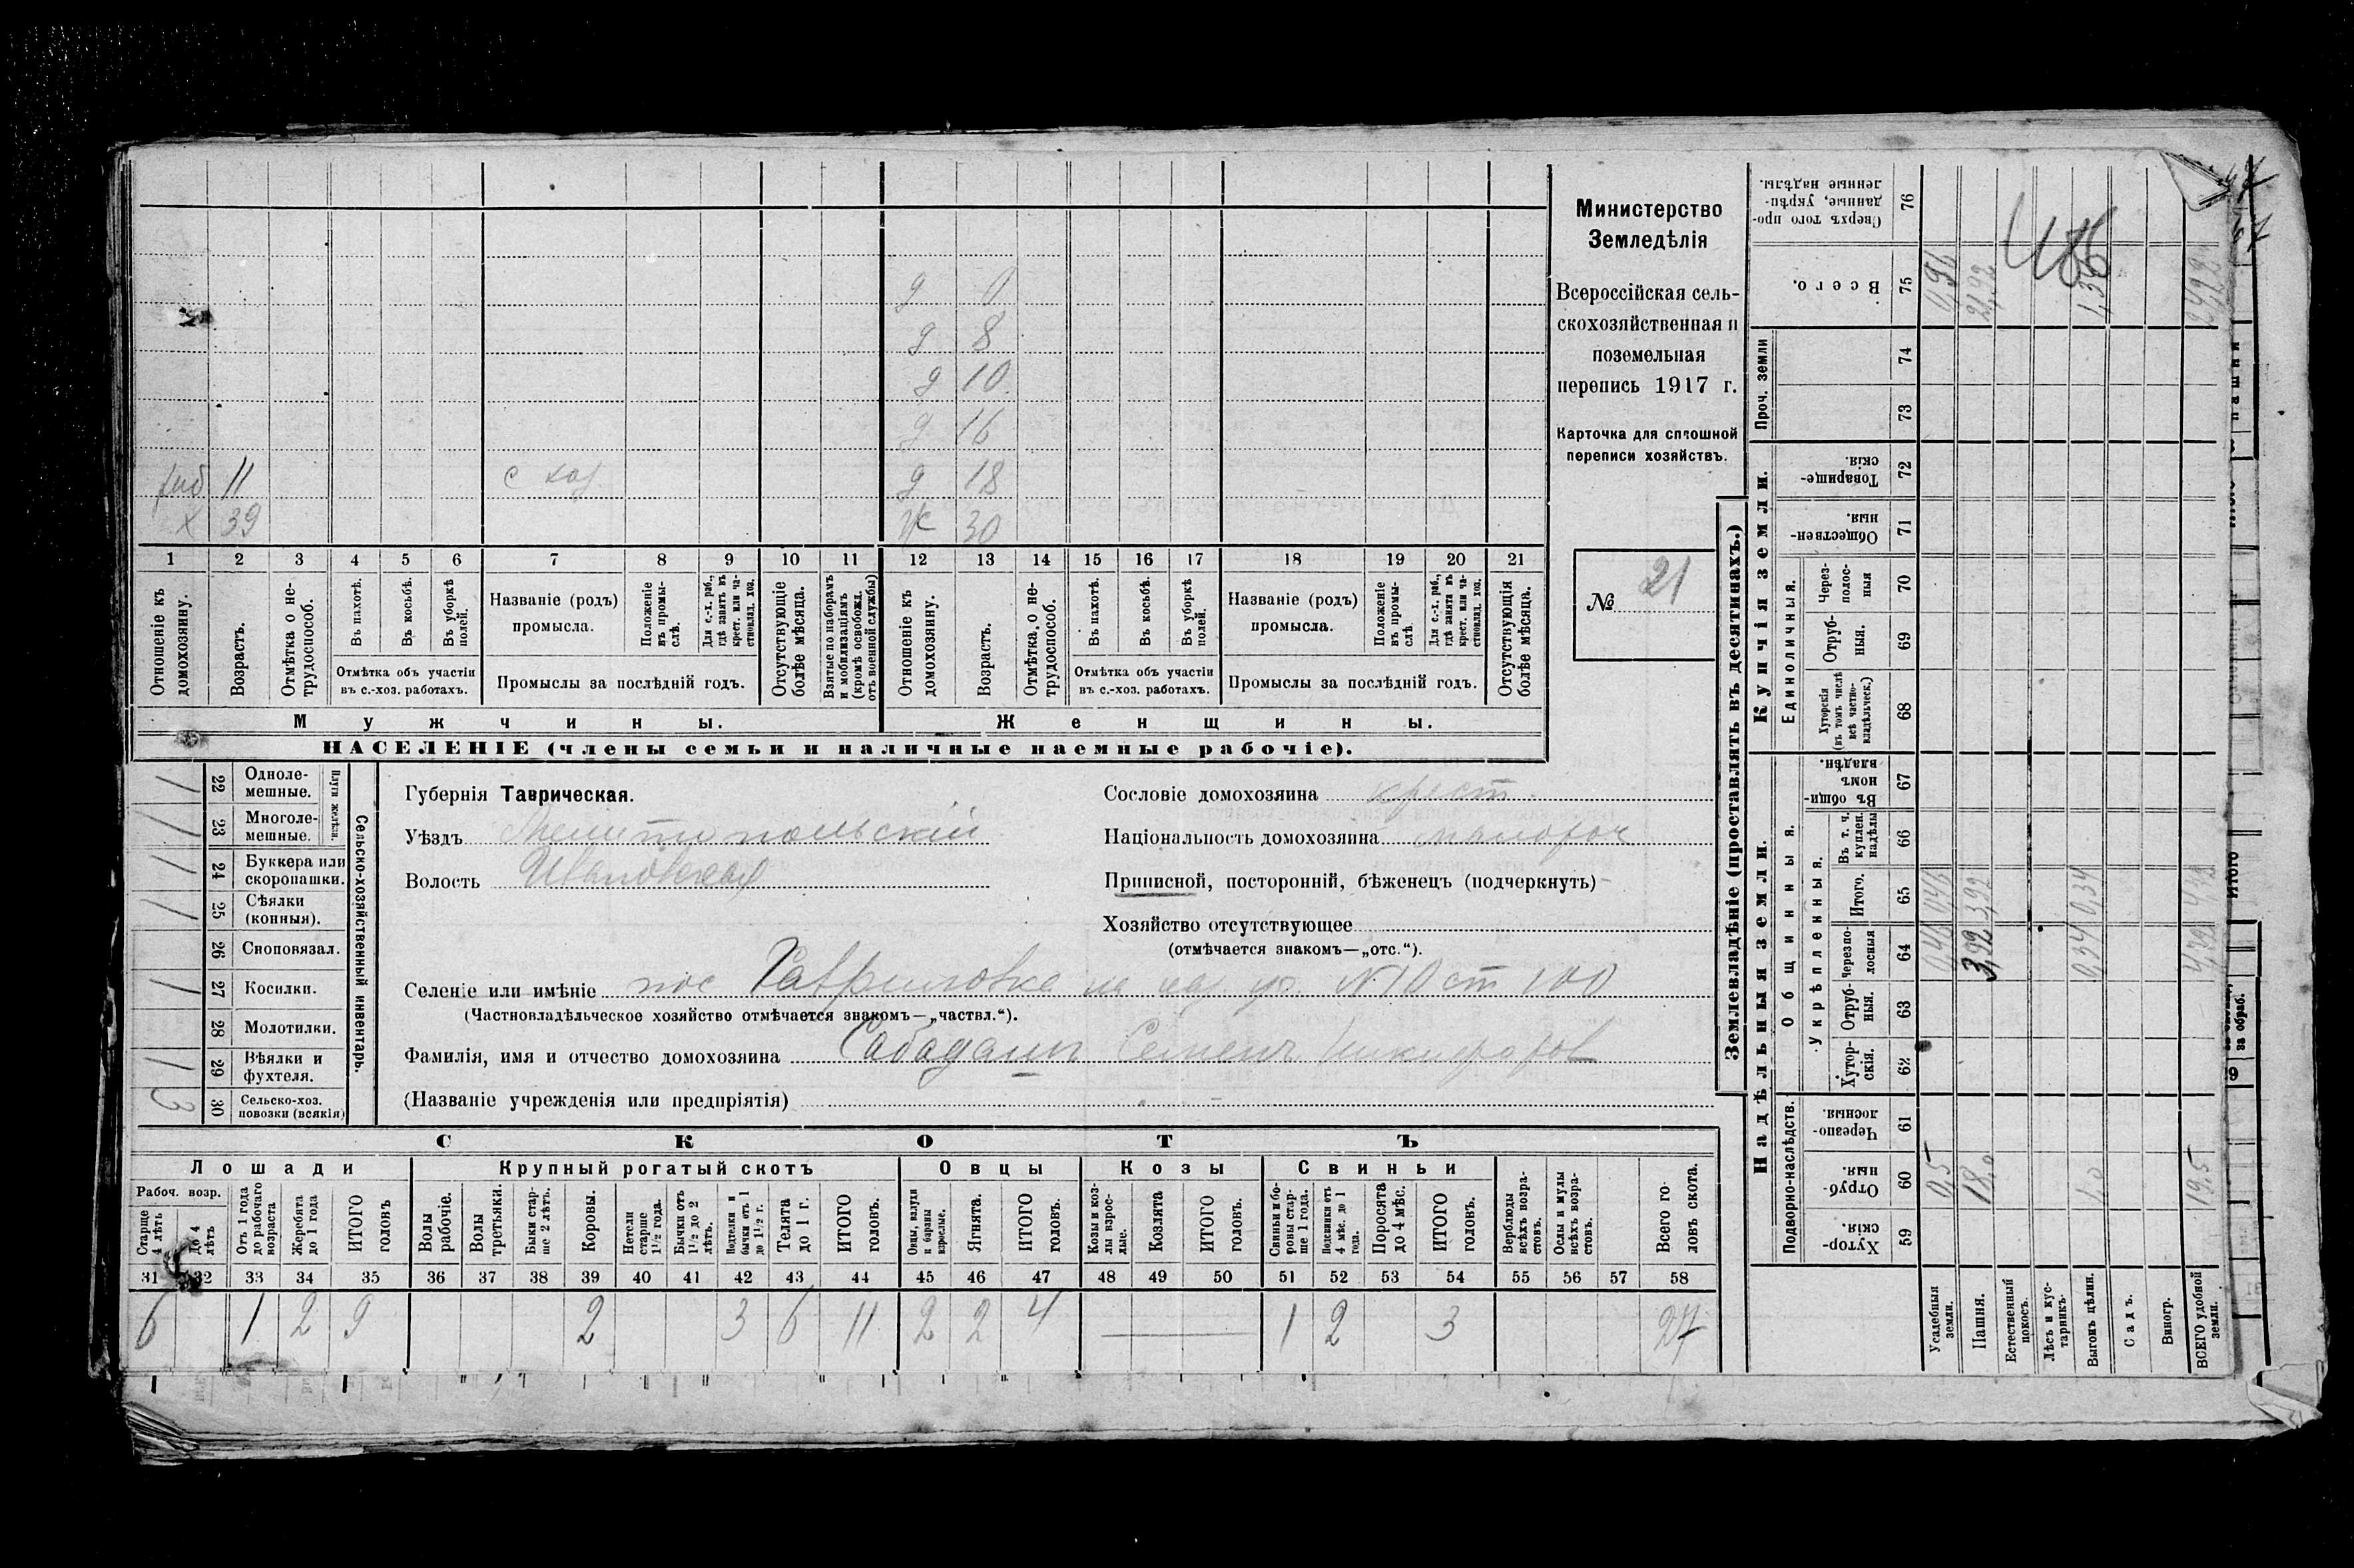 Министерство
Земледѣлія
Всероссійская сель-
скохозяйственная и
поземельная
перепись 1917 г.
Карточка для сплошной
переписи хозяйствъ.
№ 21
д 0
д 8
д 10
д 16
11 д 18
х 39 ж 30
1 2 3 4 5 6 7 8 9 10 11 12 13 14 15 16 17 18 19 20 21
Отношеніе къ домохозяину.
Возрастъ.
Отмѣтка о не-трудоспособ.
Въ пахотѣ.
Въ косьбѣ.
Въ уборкѣ полей.
Отмѣтка объ участіи
въ с.-хоз. работахъ.
Названіе (родъ)
промысла.
Положеніе въ промы-слѣ.
Для с.-х. раб., гдѣ занятъ въ крест. или ча-стновлад. хоз.
Промыслы за послѣдній годъ.
Отсутствующіе болѣе мѣсяца.
Взятые по наборамъ и мобилизаціямъ (кромѣ освобожд. отъ военной службы)
Отношеніе къ домохозяину.
Возрастъ.
Отмѣтка о не-трудоспособ.
Въ пахотѣ.
Въ косьбѣ.
Въ уборкѣ полей.
Отмѣтка объ участіи
въ с.-хоз. работахъ.
Названіе (родъ)
промысла.
Положеніе въ промы-слѣ.
Для с.-х. раб., гдѣ занята въ крест. или ча-стновлад. хоз.
Промыслы за послѣдній годъ.
Отсутствующія болѣе мѣсяца.
Мужчины. Женщины.
НАСЕЛЕНІЕ (члены семьи и наличные наемные рабочіе).
Сельско-хозяйственный инвентарь.
Плуги желѣзн.
1 22 Одноле-мешные.
1 23 Многоле-мешные.
1 24 Буккера или скоропашки.
1 25 Сѣялки (конныя).
26 Сноповязал.
1 27 Косилки.
28 Молотилки.
1 29 Вѣялки и фухтеля.
3 30 Сельско-хоз. повозки (всякія)
Губернія Таврическая.
Уѣздъ Мелитопольскій
Волость Ивановская
Сословіе домохозяина крест.
Національность домохозяина малорос
Приписной, посторонній, бѣженецъ (подчеркнуть)
Хозяйство отсутствующее
(отмѣчается знакомъ—„отс.“).
Селеніе или имѣніе пос Гавриловка на над. уч. №10 ст 100
(Частновладѣльческое хозяйство отмѣчается знакомъ—„частвл.“).
Фамилія, имя и отчество домохозяина Сабадашъ Семенъ Никифоров
(Названіе учрежденія или предпріятія)
СКОТЪ
Лошади Крупный рогатый скотъ Овцы Козы Свиньи
Рабоч. возр.
Старше 4 лѣтъ
До 4 лѣтъ
Отъ 1 года до рабочаго возраста
Жеребята до 1 года
ИТОГО головъ
Волы рабочіе.
Волы третьяки.
Быки стар-ше 2 лѣтъ.
Коровы.
Нетели старше 1½ года.
Бычки отъ 1½ до 2 лѣтъ.
Подтелки и бычки отъ 1 до 1½ г.
Телята до 1 г.
ИТОГО головъ.
Овцы, валухи и бараны взрослые.
Ягнята.
ИТОГО головъ.
Козы и коз-лы взрос-лые.
Козлята
ИТОГО головъ.
Свиньи и бо-ровы стар-ше 1 года.
Подсвинки отъ 4 мѣс. до 1 года.
Поросята до 4 мѣс.
ИТОГО головъ.
Верблюды всѣхъ возра-стовъ.
Ослы и мулы всѣхъ возра-стовъ.
Всего го-ловъ скота.
31 32 33 34 35 36 37 38 39 40 41 42 43 44 45 46 47 48 49 50 51 52 53 54 55 56 57 58
6 1 2 9 2 3 6 11 2 2 4 1 2 3 27
Землевладѣніе (проставлять въ десятинахъ.)
Надѣльныя земли. Купчія земли. Проч. земли
Подворно-наслѣдств. Общинныя. Единоличныя.
Укрѣпленныя.
Хутор-скія. 59
Отруб-ныя. 60
Черезпо-лосныя. 61
Хутор-скія. 62
Отруб-ныя. 63
Черезпо-лосныя 64
Итого. 65
Въ т. ч. куплен. надѣлы 66
Въ общин-номъ владѣн. 67
Хуторскія (въ томъ числѣ всѣ частно-владѣльческ.) 68
Отруб-ныя. 69
Через-полос-ныя 70
Обществен-ныя. 71
Товарище-скія. 72
73
74
Всего. 75
Сверхъ того про-данные, укрѣп-ленные надѣлы. 76
Усадебныя земли. 0,5 0,46 0,46 0,96
Пашня. 18,0 3,92 3,92 21,92
Естественный покосъ.
Лѣсъ и кус-тарникъ.
Выгонъ цѣлин. 1,0 0,34 0,34 1,36
Садъ.
Виногр.
ВСЕГО удобной земли. 19,5
486